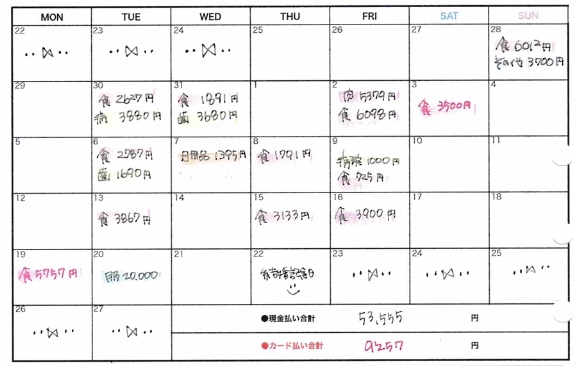 MON TUE WED THU FRI SAT SUN
22 23 24 25 26 27 28
食 6012円
その他 3700円
29 30 31 1 2 3 4
食 2627円
病 3880円
食 1891円
歯 3680円
肉 5379円
食 6098円
食 3500円
5 6 7 8 9 10 11
食 2587円
歯 1690円
日用品 1395円
食 1791円
病院 1000円
食 725円
12 13 14 15 16 17 18
食 3867円
食 3133円
食 3900円
19 20 21 22 23 24 25
食 5757円
服 20,000
結婚記念日
26 27
●現金払い合計 53,555 円
●カード払い合計 9257 円